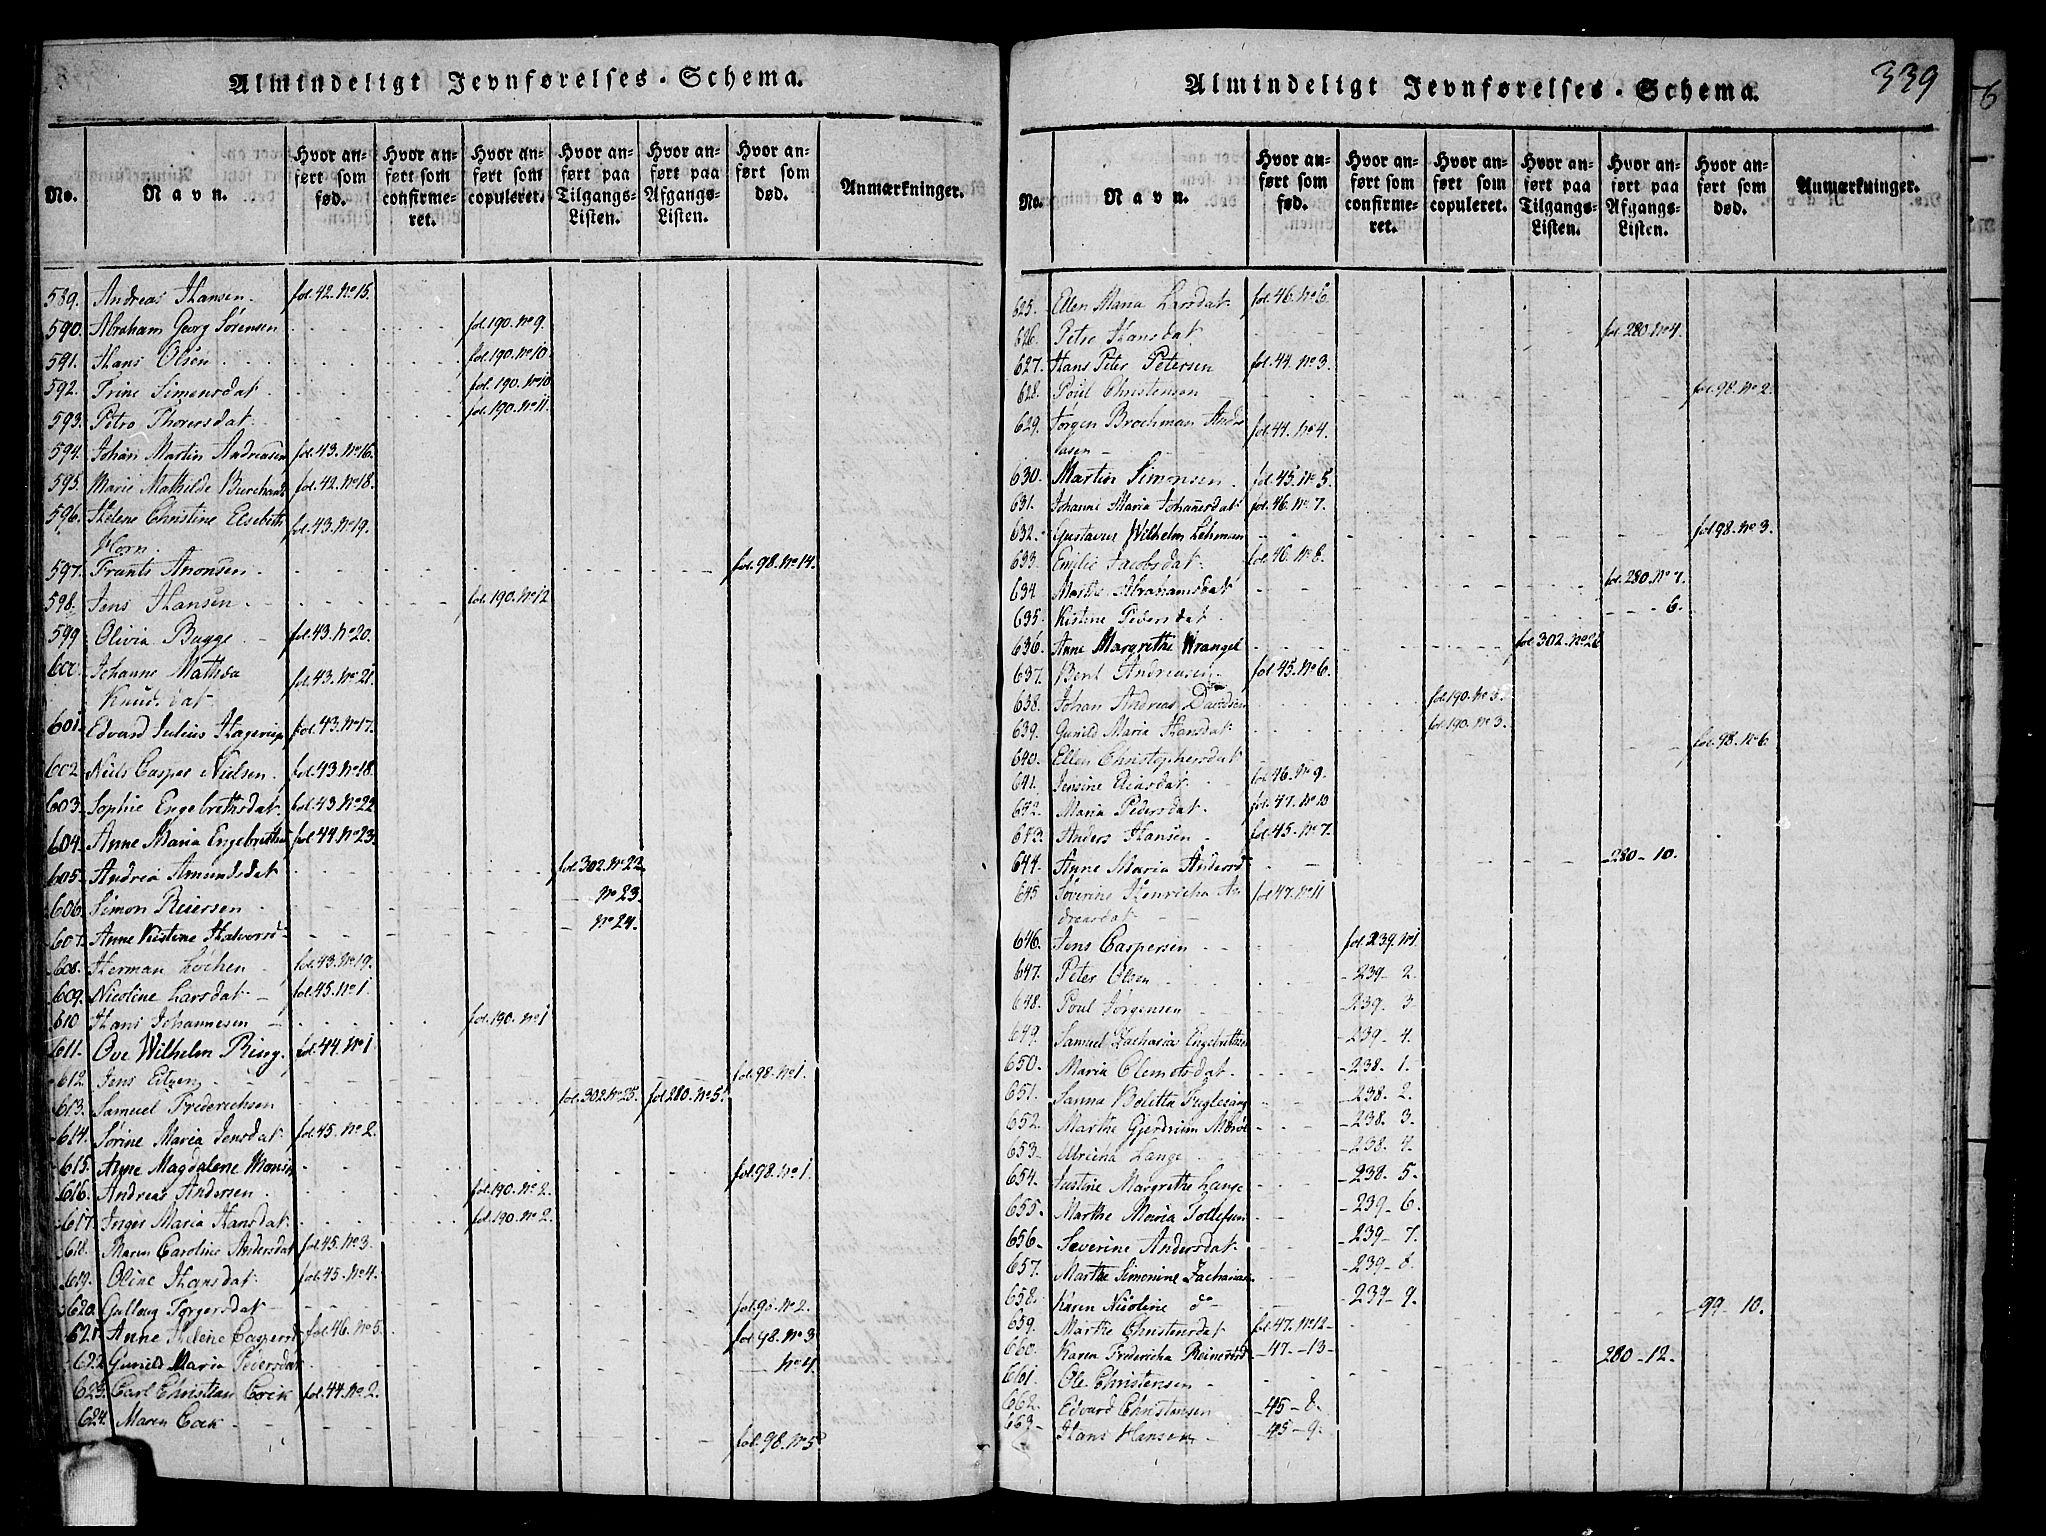 Almindeligt Jevnførelses-Schema.
No.
Navn.
Hvor anført som fød.
Hvor anført som confirmeret.
Hvor anført som copuleret.
Hvor anført paa Tilgangs-Listen.
Hvor anført paa Afgangs-Listen.
Hvor anført som død.
Anmærkninger.
589. Andreas Hansen. fol. 42. No 15.
590. Abraham Georg Sørensen fol. 190. No 9.
591. Hans Olsen fol. 190. No 10.
592. Trine Simensdat. fol. 190. No 10
593. Petro Thoresdat. fol. 190. No 11.
594. Johan Martin Andreasen fol. 43. No 16.
595. Marie Mathilde fol. 42. No 18.
596. Helene Christine Elsebeth fol. 43. No 19.
Horn.
597. Frants Anonsen. fol. 98. No 14.
598. Jens Hansen. fol. 190. No 12
599. Olivia Bugge. fol. 43. No 20.
600. Johanne Mathea fol. 43. No 21.
Knudsdat.
601. Edvard Julius Hagerup fol. 43. No 17.
602. Niels Casper Nielsen. fol. 43. No 18.
603. Sophie Engebrethsdat. fol. 43. No 22.
604. Anne Maria fol. 44. No 23.
605. Andrea Amundsdat fol. 302. No 22.
606. Simon Reiersen. No 23.
607. Anne Kistine Halvorsd- No 24.
608. Herman Lochen fol. 43. No 19.
609. Nicoline Larsdat fol. 45. No 1.
610 Hans Johannesen fol. 190. No 1
611. Ove Wilhelm Ring. fol. 44. No 1.
612. Jens fol. 98. No 1.
613. Samuel Frederichsen fol. 302. No 25. fol. 280. No 5.
614. Sørine Maria Jensdat. fol. 45. No 2.
615. Anne Magdalene fol. 98. No 1.
616. Andreas Andersen. fol. 190. No 2.
617. Inger Maria Hansdat. fol. 190. No 2.
618. Maren Caroline Andersdat fol. 45. No 3.
619. Oline Hansdat. fol. 45. No 4.
620. Gulloug Torgersdat fol. 98. No 2.
621. Anne Helene Caspersd fol. 46. No 5. fol. 98. No 3
622 Gunild Maria Pedersdat No 4
623. Carl Christian Cock fol. 44. No 2.
624. Maren Cock fol. 98. No 5
Almindeligt Jevnførelses-Schema.
339
No.
Navn.
Hvor anført som fød.
Hvor anført som confirmeret.
Hvor anført som copuleret.
Hvor anført paa Tilgangs-Listen.
Hvor anført paa Afgangs-Listen.
Hvor anført som død.
Anmærkninger.
625. Ellen Maria Larsdat. fol. 46. No 6.
626. Petro Hansdat. fol. 280. No 4.
627. Hans Peter Petersen fol. 44. No 3.
628. Poul Christensen fol. 98. No 2.
629. Jørgen Brochman Andre- fol. 44. No 4.
asen
630. Martin Simonsen. fol. 45. No 5.
631. Johanne Maria Johansdat fol. 46. No 7.
632. Gustavus Wilhelm Lehman fol. 98. No 3.
633. Emilie Jacobsdat. fol. 46. No 8.
634 Marthe Abrahamsdat fol. 280. No 7.
635. Kistine Pedersdat. 6.
636. Anne Margrethe Wrangel fol. 302. No 26
637. Bent Andreasen. fol. 45. No 6.
638. Johan Andreas Davidsen fol. 190. No 3.
639. Gunild Maria Hansdat fol. 190. No 3.
640. Ellen Christophersdat fol. 98. No 6.
641. Jensine Eliasdat. fol. 46. No 9.
642. Maria Pedersdat. fol. 47. No 10
643. Anders Hansen fol. 45. No 7.
644. Anne Maria Andersd 280-10.
645 Severine Henricha An- fol. 47. No 11
dreasdat
646. Jens Caspersen fol. 239. No 1.
647. Peter Olsen 239- 2.
648. Poul Jørgensen 239- 3
649. Samuel Zacharia Engebrethsen 239- 4.
650. Maria Clemetsdat. 238- 1.
651. Sanna Boletta Fuglesang 238- 2.
652. Marthe Gjerdrum 238- 3
653 Lange 238- 4.
654. Justine Margrethe Lange 238- 5.
655. Marthe Maria Tollefsen 239- 6.
656- Severine Andersdat. 239- 7.
657. Marthe Simonine 239- 8.
658. Karen Nicoline do 239- 9. 99- 10.
659. Marthe Christensdat fol. 47. No 12
660. Karen Fredericha Reinertsd -47-13- 280-12.
661. Ole Christensen
662. Edvard Christensen -45-8.
663- Hans Hansen -45-9.